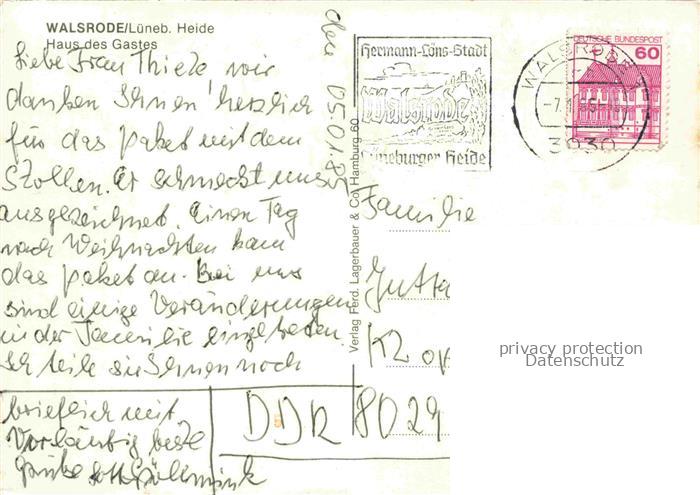 WALSRODE/Lüneb. Heide
Haus des Gastes
den 05.01.85
Liebe Frau Thiele wir
danken Ihnen herzlich
für das Paket mit dem
Stollen. Er schmeckt uns
ausgezeichnet. Einen Tag
nach Weihnachten kam
das Paket an. Bei uns
sind einige Veränderungen
in der Familie eingetreten.
Ich teile sie Ihnen noch
brieflich mit
Vorläufig beste
Grüße
Verlag Ferd. Lagerbauer & Co, Hamburg 60
Hermann-Löns-Stadt
Walsrode
Lüneburger Heide
WALSRODE
3030
DEUTSCHE BUNDESPOST
60
Familie
Jutta
DDR 8029
privacy protection
Datenschutz